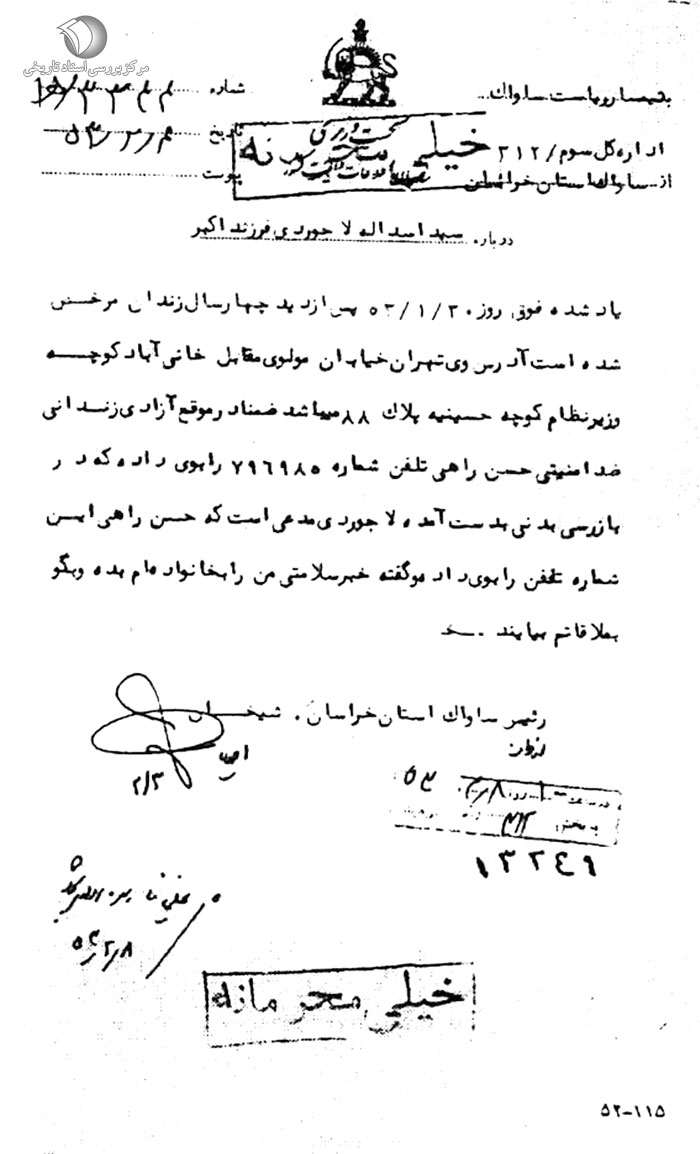 مرکز بررسی اسناد تاریخی
بتیمسار ریاست ساواک
شماره
اداره کل سوم / ۳۱۲
تاریخ ۵۳/۲/۴
از ساواک استان خراسان
پیوست
خیلی محرمانه
درباره سید اسداله لاجوردی فرزند اکبر
یاد شده فوق روز ۵۳/۱/۳۰ پس از دید چهار سال زندان مرخص
شده است آدرس وی تهران خیابان مولوی مقابل خانی آباد کوچه
وزیر نظام کوچه حسینیه پلاک ۸۸ میباشد ضمنا در موقع آزادی زندانی
ضد امنیتی حسن راهی تلفن شماره ۷۹۶۹۸۵ را بوی داده که در
بازرسی بدنی بدست آمده لاجوردی مدعی است که حسن راهی این
شماره تلفن را بوی داده و گفته خبر سلامتی من را بخانواده ام بده و بگو
بملاقاتم بیایند
رئیس ساواک استان خراسان . شیخان
۲/۳
۵۳
۳۱۲
۱۳۲۴۹
۵۳/۲/۸
خیلی محرمانه
۵۲-۱۱۵